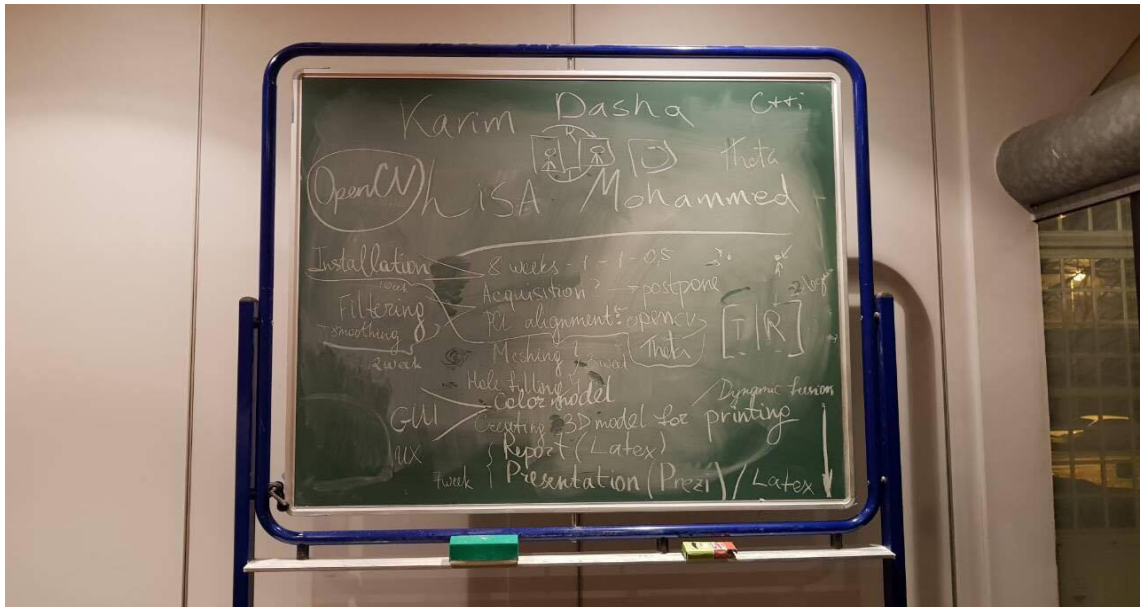 Karim Dasha C++;
Theta
OpenCV LiSA Mohammed
Installation 8 weeks - 1 - 1 - 0,5
Acquisition? → postpone
Filtering PCL alignment: opencv
smoothing Theta
[T|R]
2 week Meshing?
Hole filling
Color model Dynamic fusion
GUI Creating 3D model for printing
UX Report (Latex)
7week { Presentation (Prezi) / Latex